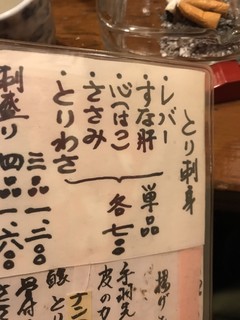 とり刺身
・レバー
・すな肝
・心(はつ)
・ささみ
・とりわさ
単品
各七〇〇
刺盛り
三品一、二〇〇
四品一、六〇〇
揚げ
手羽先
皮のカ